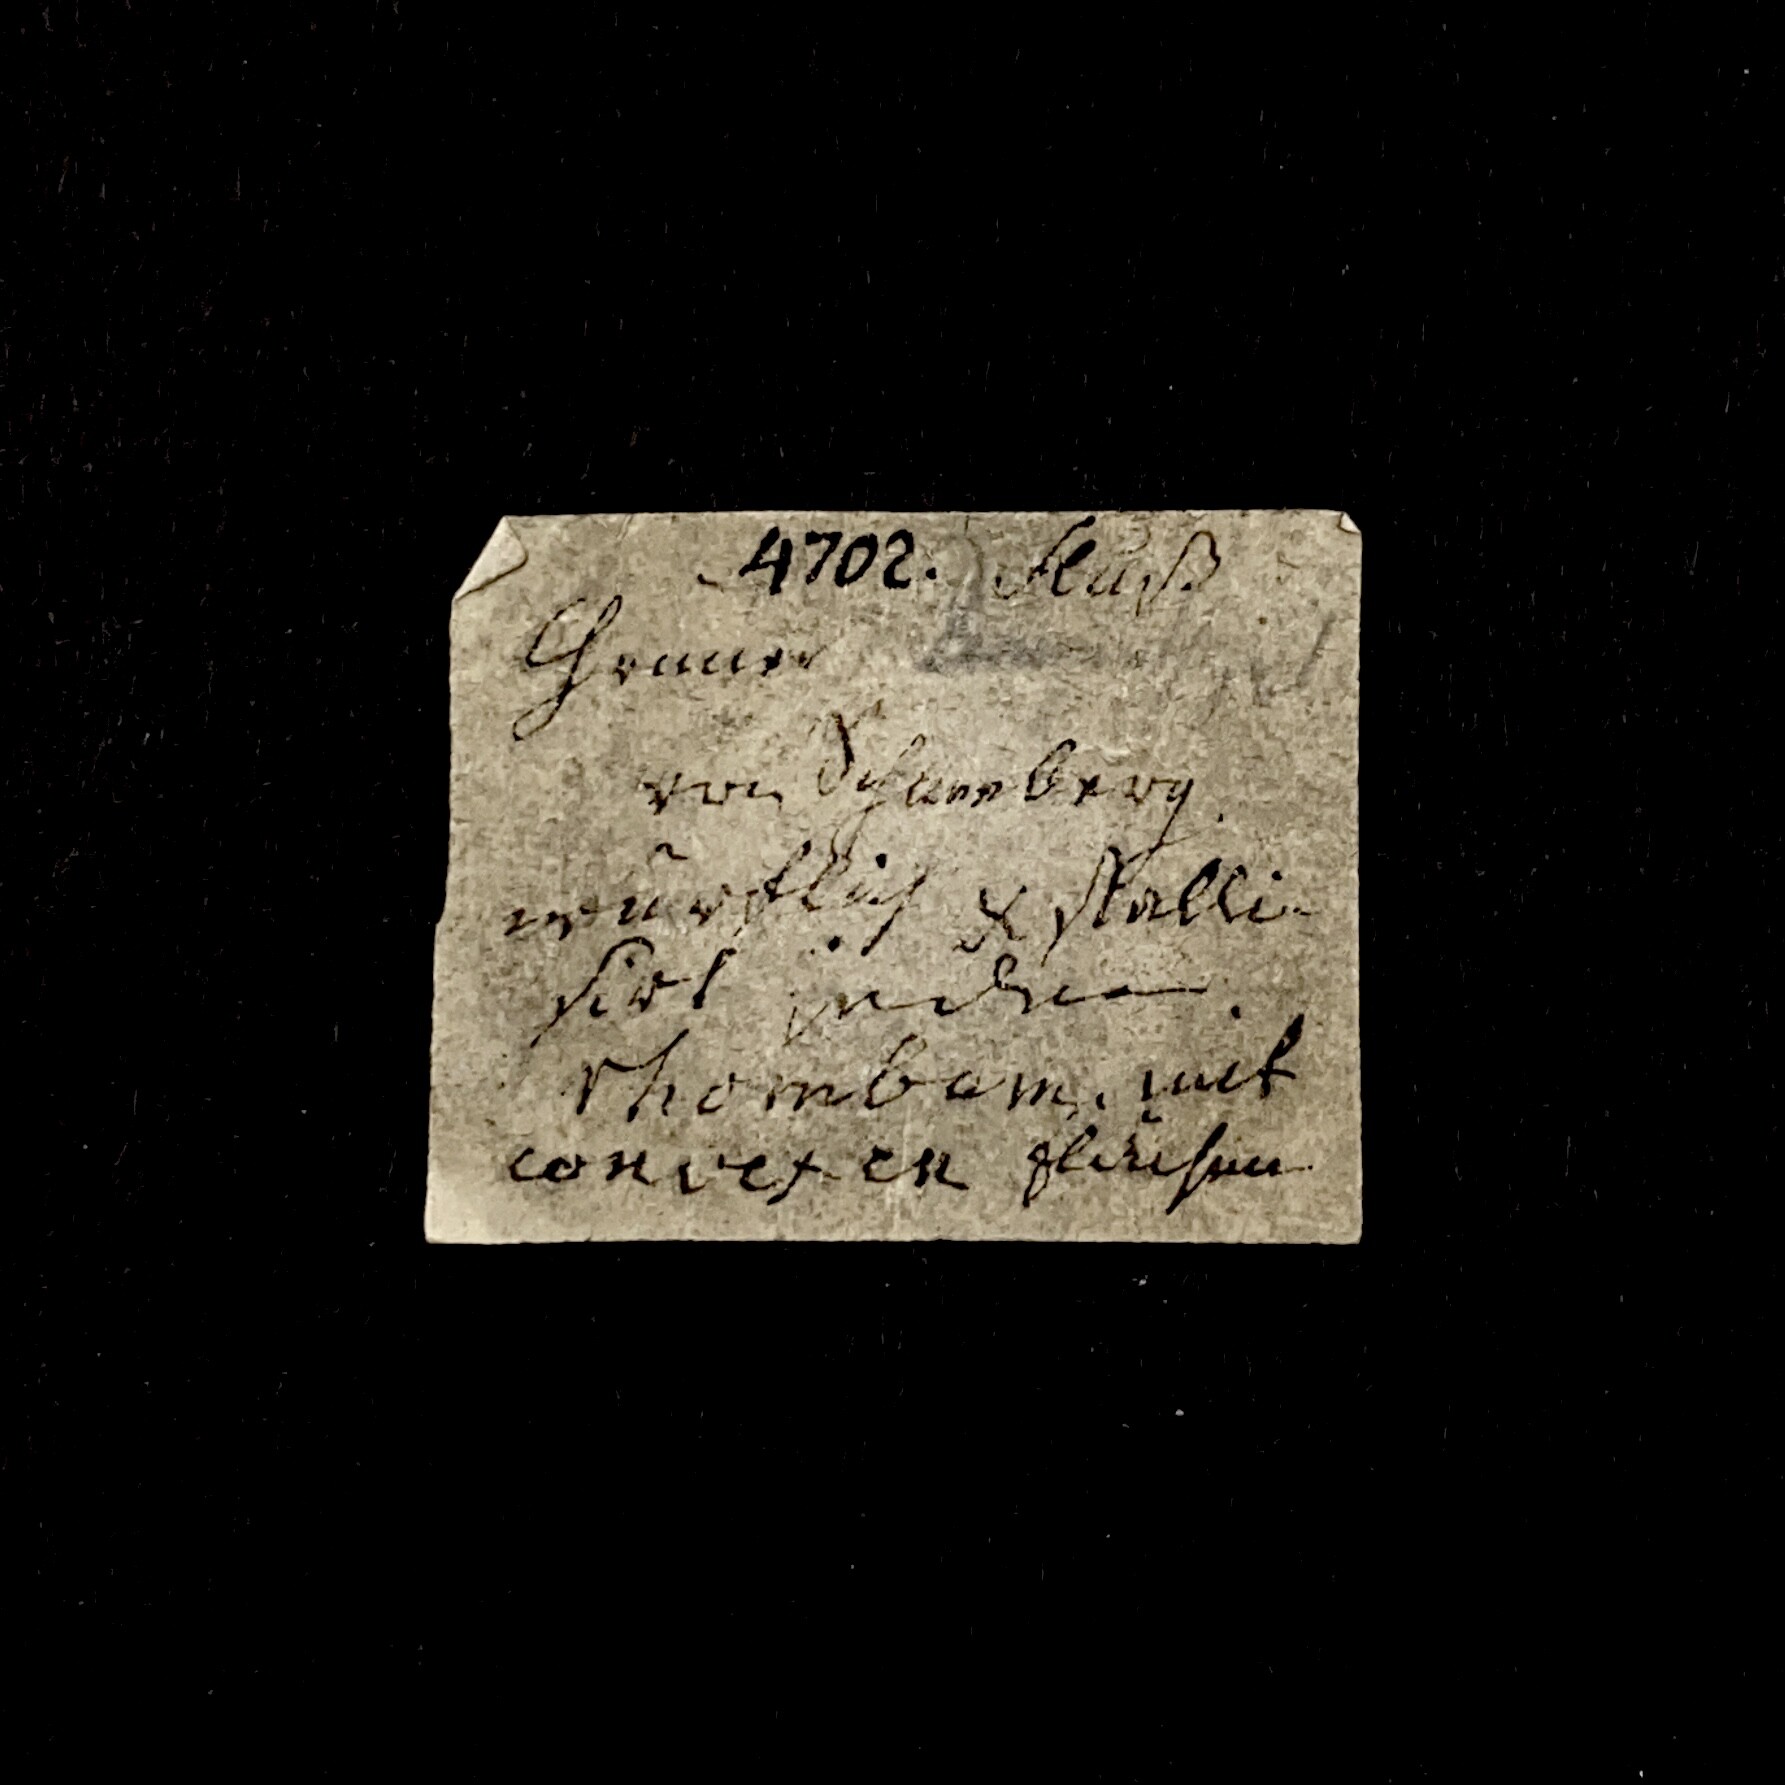 4702. Fluß
Grauer
von Scharfenberg.
würflich xstalli-
sirt in den
rhombum, mit
convexen flächen